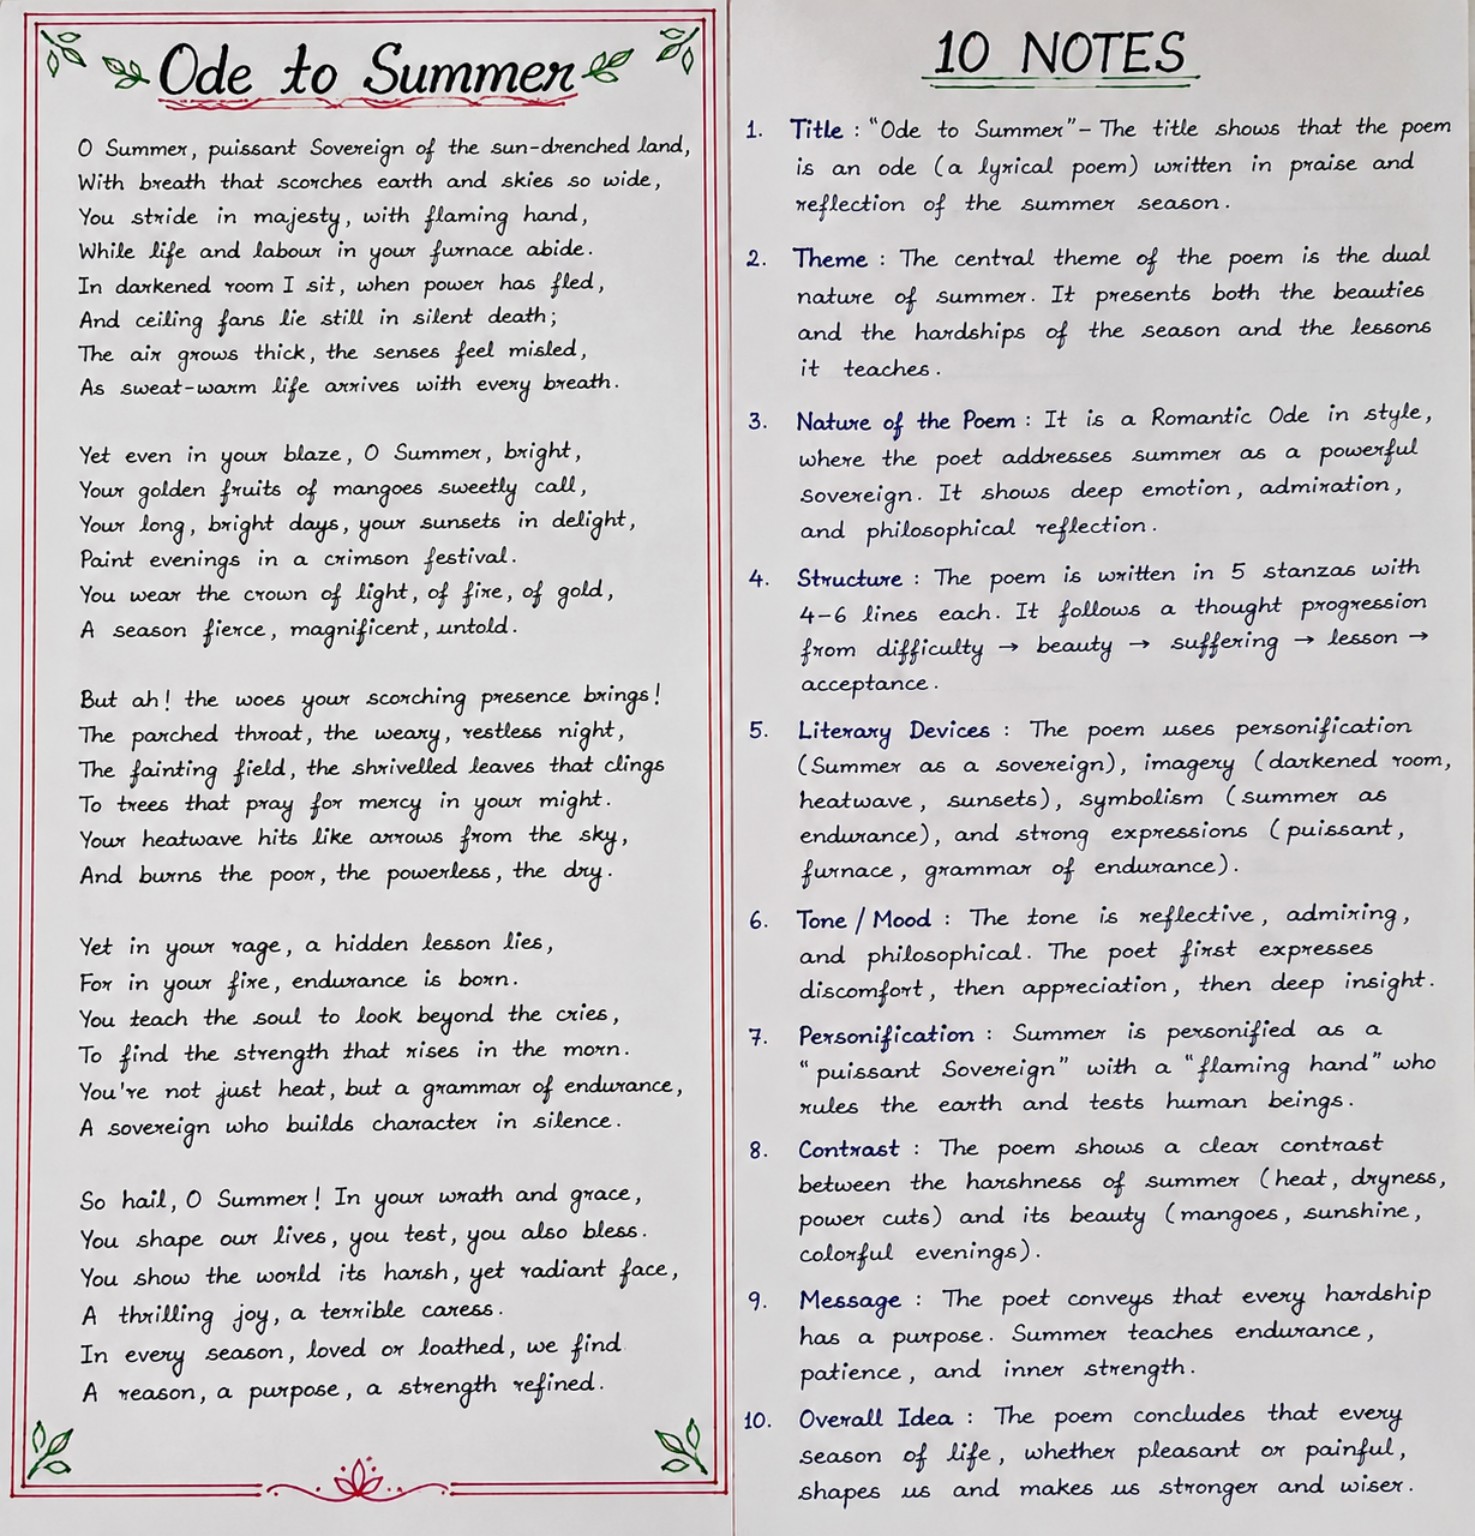 Ode to Summer
O Summer, puissant Sovereign of the sun-drenched land,
With breath that scorches earth and skies so wide,
You stride in majesty, with flaming hand,
While life and labour in your furnace abide.
In darkened room I sit, when power has fled,
And ceiling fans lie still in silent death;
The air grows thick, the senses feel misled,
As sweat-warm life arrives with every breath.
Yet even in your blaze, O Summer, bright,
Your golden fruits of mangoes sweetly call,
Your long, bright days, your sunsets in delight,
Paint evenings in a crimson festival.
You wear the crown of light, of fire, of gold,
A season fierce, magnificent, untold.
But ah! the woes your scorching presence brings!
The parched throat, the weary, restless night,
The fainting field, the shrivelled leaves that clings
To trees that pray for mercy in your might.
Your heatwave hits like arrows from the sky,
And burns the poor, the powerless, the dry.
Yet in your rage, a hidden lesson lies,
For in your fire, endurance is born.
You teach the soul to look beyond the cries,
To find the strength that rises in the morn.
You're not just heat, but a grammar of endurance,
A sovereign who builds character in silence.
So hail, O Summer! In your wrath and grace,
You shape our lives, you test, you also bless.
You show the world its harsh, yet radiant face,
A thrilling joy, a terrible caress.
In every season, loved or loathed, we find
A reason, a purpose, a strength refined.
10 NOTES
1. Title : "Ode to Summer" - The title shows that the poem
is an ode (a lyrical poem) written in praise and
reflection of the summer season.
2. Theme : The central theme of the poem is the dual
nature of summer. It presents both the beauties
and the hardships of the season and the lessons
it teaches.
3. Nature of the Poem : It is a Romantic Ode in style,
where the poet addresses summer as a powerful
sovereign. It shows deep emotion, admiration,
and philosophical reflection.
4. Structure : The poem is written in 5 stanzas with
4-6 lines each. It follows a thought progression
from difficulty → beauty → suffering → lesson →
acceptance.
5. Literary Devices : The poem uses personification
(Summer as a sovereign), imagery (darkened room,
heatwave, sunsets), symbolism (summer as
endurance), and strong expressions (puissant,
furnace, grammar of endurance).
6. Tone / Mood : The tone is reflective, admiring,
and philosophical. The poet first expresses
discomfort, then appreciation, then deep insight.
7. Personification : Summer is personified as a
"puissant Sovereign" with a "flaming hand" who
rules the earth and tests human beings.
8. Contrast : The poem shows a clear contrast
between the harshness of summer (heat, dryness,
power cuts) and its beauty (mangoes, sunshine,
colorful evenings).
9. Message : The poet conveys that every hardship
has a purpose. Summer teaches endurance,
patience, and inner strength.
10. Overall Idea : The poem concludes that every
season of life, whether pleasant or painful,
shapes us and makes us stronger and wiser.